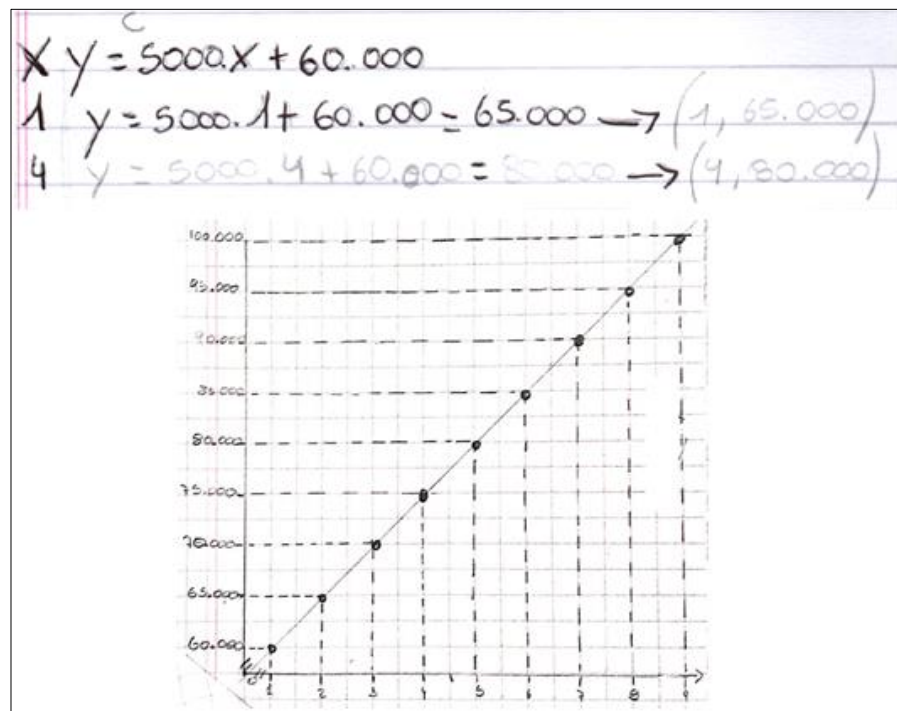 C
X y = 5000.X + 60.000
1 y = 5000.1 + 60.000 = 65.000 → (1, 65.000)
4 y = 5000.4 + 60.000 = 80.000 → (4, 80.000)
100.000
95.000
90.000
85.000
80.000
75.000
70.000
65.000
60.000
1 2 3 4 5 6 7 8 9